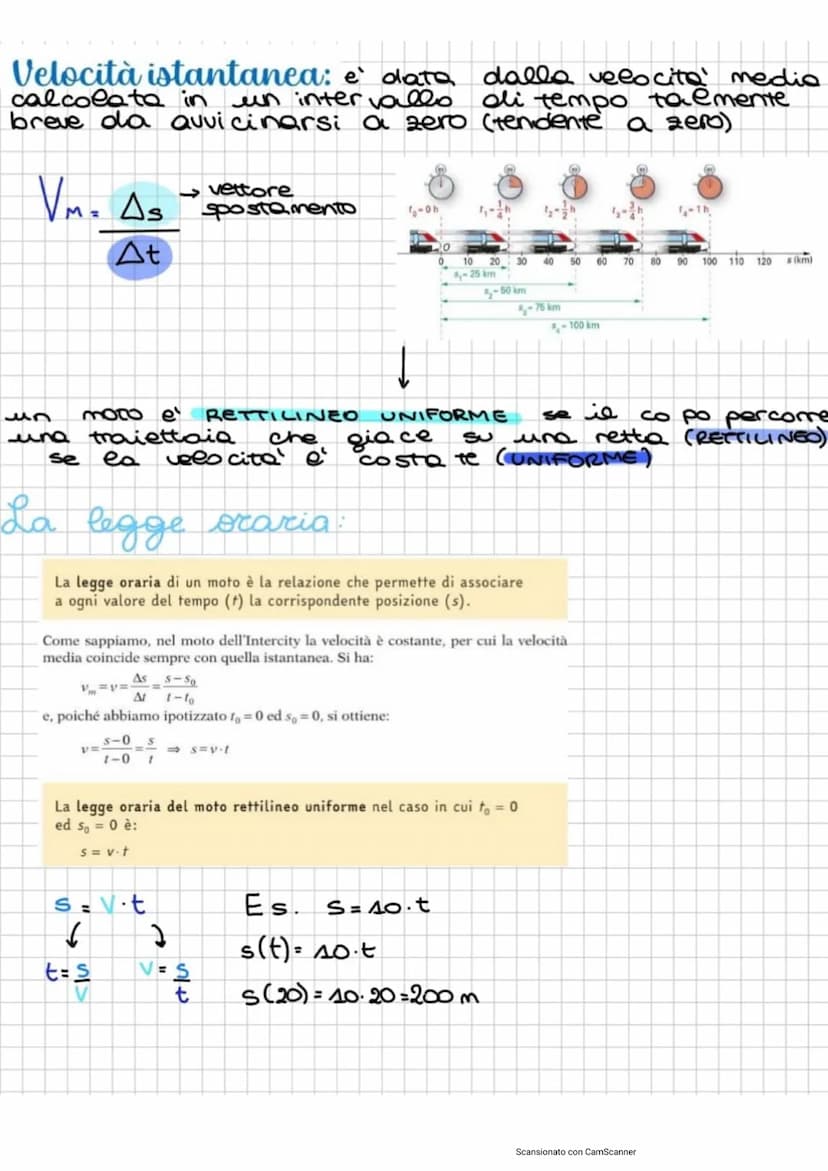 Velocità istantanea: e' data dalla velocita' media
calcolata in un intervallo di tempo talmente
breve da avvicinarsi a zero (tendente a zero)
VM = Δs / Δt → vettore spostamento
t₀=0 h t₁=1/4 h t₂=1/2 h t₃=3/4 h t₄=1 h
O
0 10 20 30 40 50 60 70 80 90 100 110 120 s (km)
s₁= 25 km
s₂= 50 km
s₃= 75 km
s₄= 100 km
↓
un moto e' RETTILINEO UNIFORME se il co po percorre
una traiettoia che giace su una retta (RETTILINEO)
se la velocita' e' costa te (UNIFORME)
La legge oraria:
La legge oraria di un moto è la relazione che permette di associare
a ogni valore del tempo (t) la corrispondente posizione (s).
Come sappiamo, nel moto dell'Intercity la velocità è costante, per cui la velocità
media coincide sempre con quella istantanea. Si ha:
vₘ = v = Δs/Δt = (s−s₀)/(t−t₀)
e, poiché abbiamo ipotizzato t₀ = 0 ed s₀ = 0, si ottiene:
v = (s−0)/(t−0) = s/t ⇒ s = v·t
La legge oraria del moto rettilineo uniforme nel caso in cui t₀ = 0
ed s₀ = 0 è:
s = v·t
s = v·t
t = s/v v = s/t
Es. s = 10·t
s(t) = 10·t
s(20) = 10·20 = 200 m
Scansionato con CamScanner